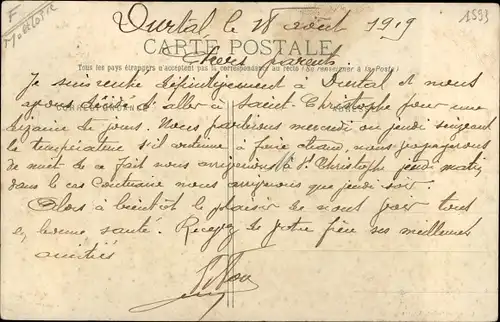 Durtal le 18 août 1919
1593
CARTE POSTALE
Tous les pays étrangers n'acceptent pas la correspondance au recto (Se renseigner à la Poste)
Chers parents
Je suis rentré définitivement à Durtal et nous
avons décidé d'aller à Saint-Christophe pour une
CORRESPONDANCE
dizaine de jours. Nous partirons mercredi ou jeudi suivant
la température s'il continue à faire chaud, nous voyagerons
de nuit de ce fait nous arriverions à St Christophe jeudi matin
dans le cas contraire nous arriverons que jeudi soir.
Alors à bientôt le plaisir de vous voir tous
en bonne santé. Recevez de votre frère ses meilleures
amitiés